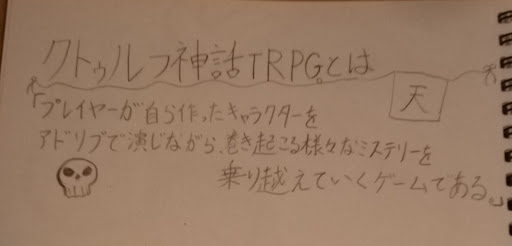 クトゥルフ神話TRPGとは
天
「プレイヤーが自ら作ったキャラクターを
アドリブで演じながら、巻き起こる様々なミステリーを
乗り越えていくゲームである。」